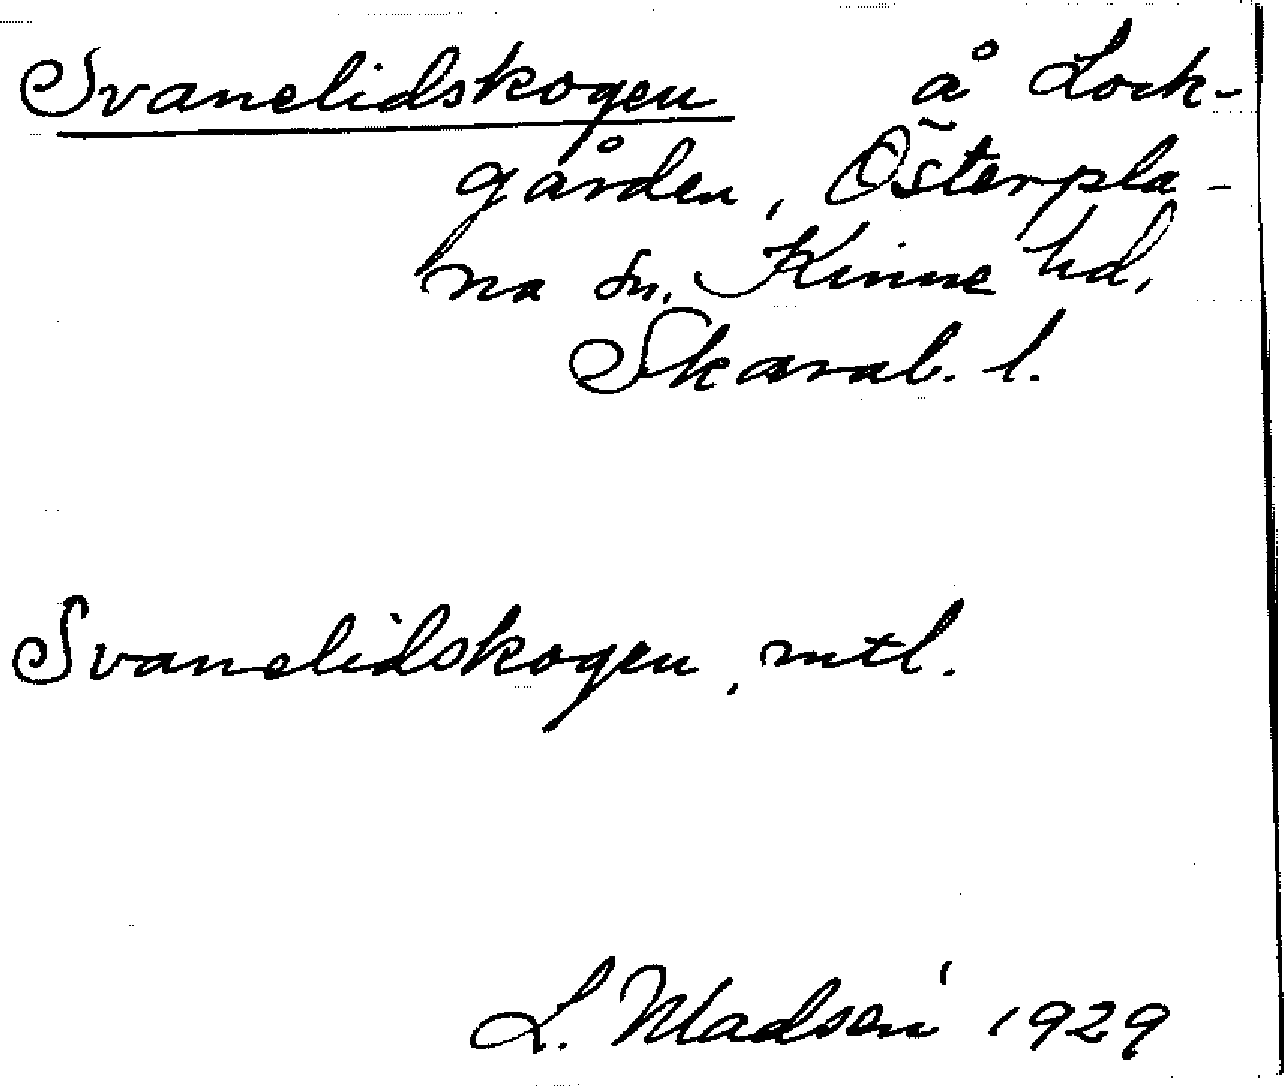 Svanelidskogen å Lock-
gården, Österpla-
na sn. Kinne hd.
Skarab. l.
Svanelidskogen, mtl.
L. Madsén 1929